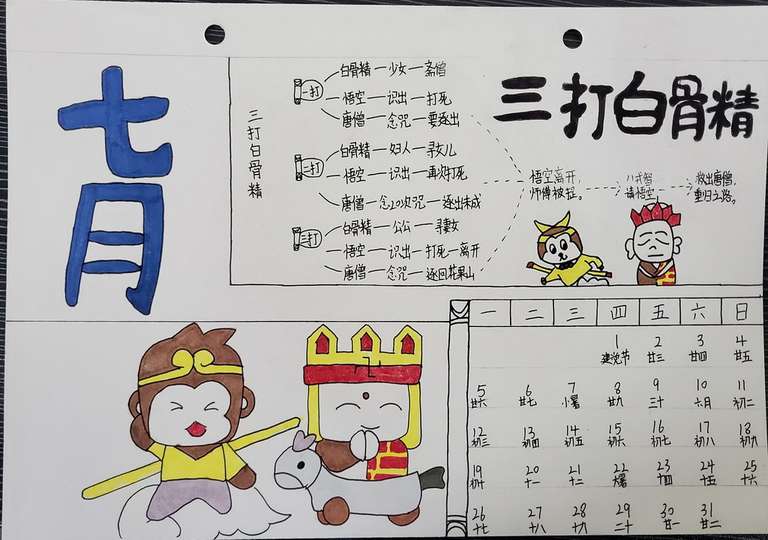 七月
三打白骨精
三打白骨精
一打
白骨精 — 少女 — 斋僧
悟空 — 识出 — 打死
唐僧 — 念咒 — 要逐出
二打
白骨精 — 妇人 — 寻女儿
悟空 — 识出 — 再次打死
唐僧 — 念20次咒 — 逐出未成
三打
白骨精 — 公公 — 寻妻女
悟空 — 识出 — 打死 — 离开
唐僧 — 念咒 — 逐回花果山
悟空离开,
师傅被捉。
八戒智
请悟空
救出唐僧,
重归之路。
一 二 三 四 五 六 日
1 2 3 4
建党节 廿三 廿四 廿五
5 6 7 8 9 10 11
廿六 廿七 小暑 廿九 三十 六月 初二
12 13 14 15 16 17 18
初三 初四 初五 初六 初七 初八 初九
19 20 21 22 23 24 25
初十 十一 十二 大暑 十四 十五 十六
26 27 28 29 30 31
十七 十八 十九 二十 廿一 廿二